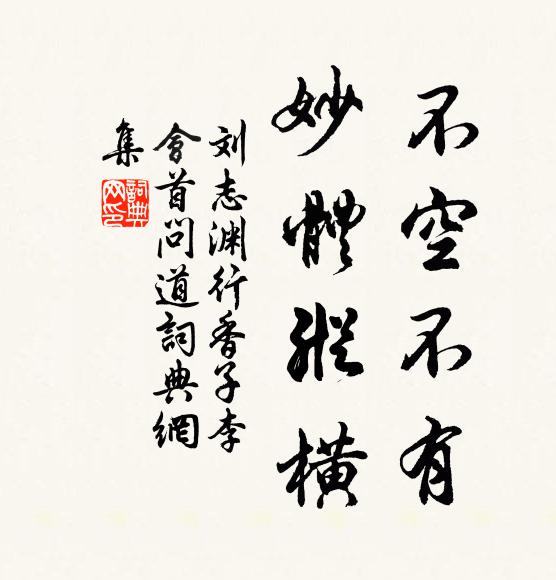 不空不有
妙體縱橫
刘志渊行香子李
會首问道詞典網
集
詞典
网印